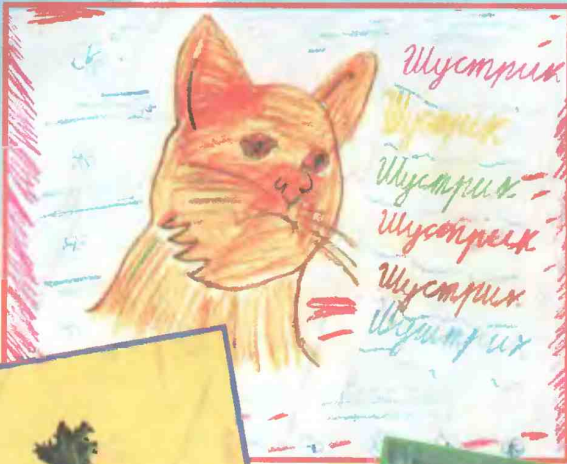 Шустрик
Шустрик
Шустрик
Шустрик
Шустрик
Шустрик